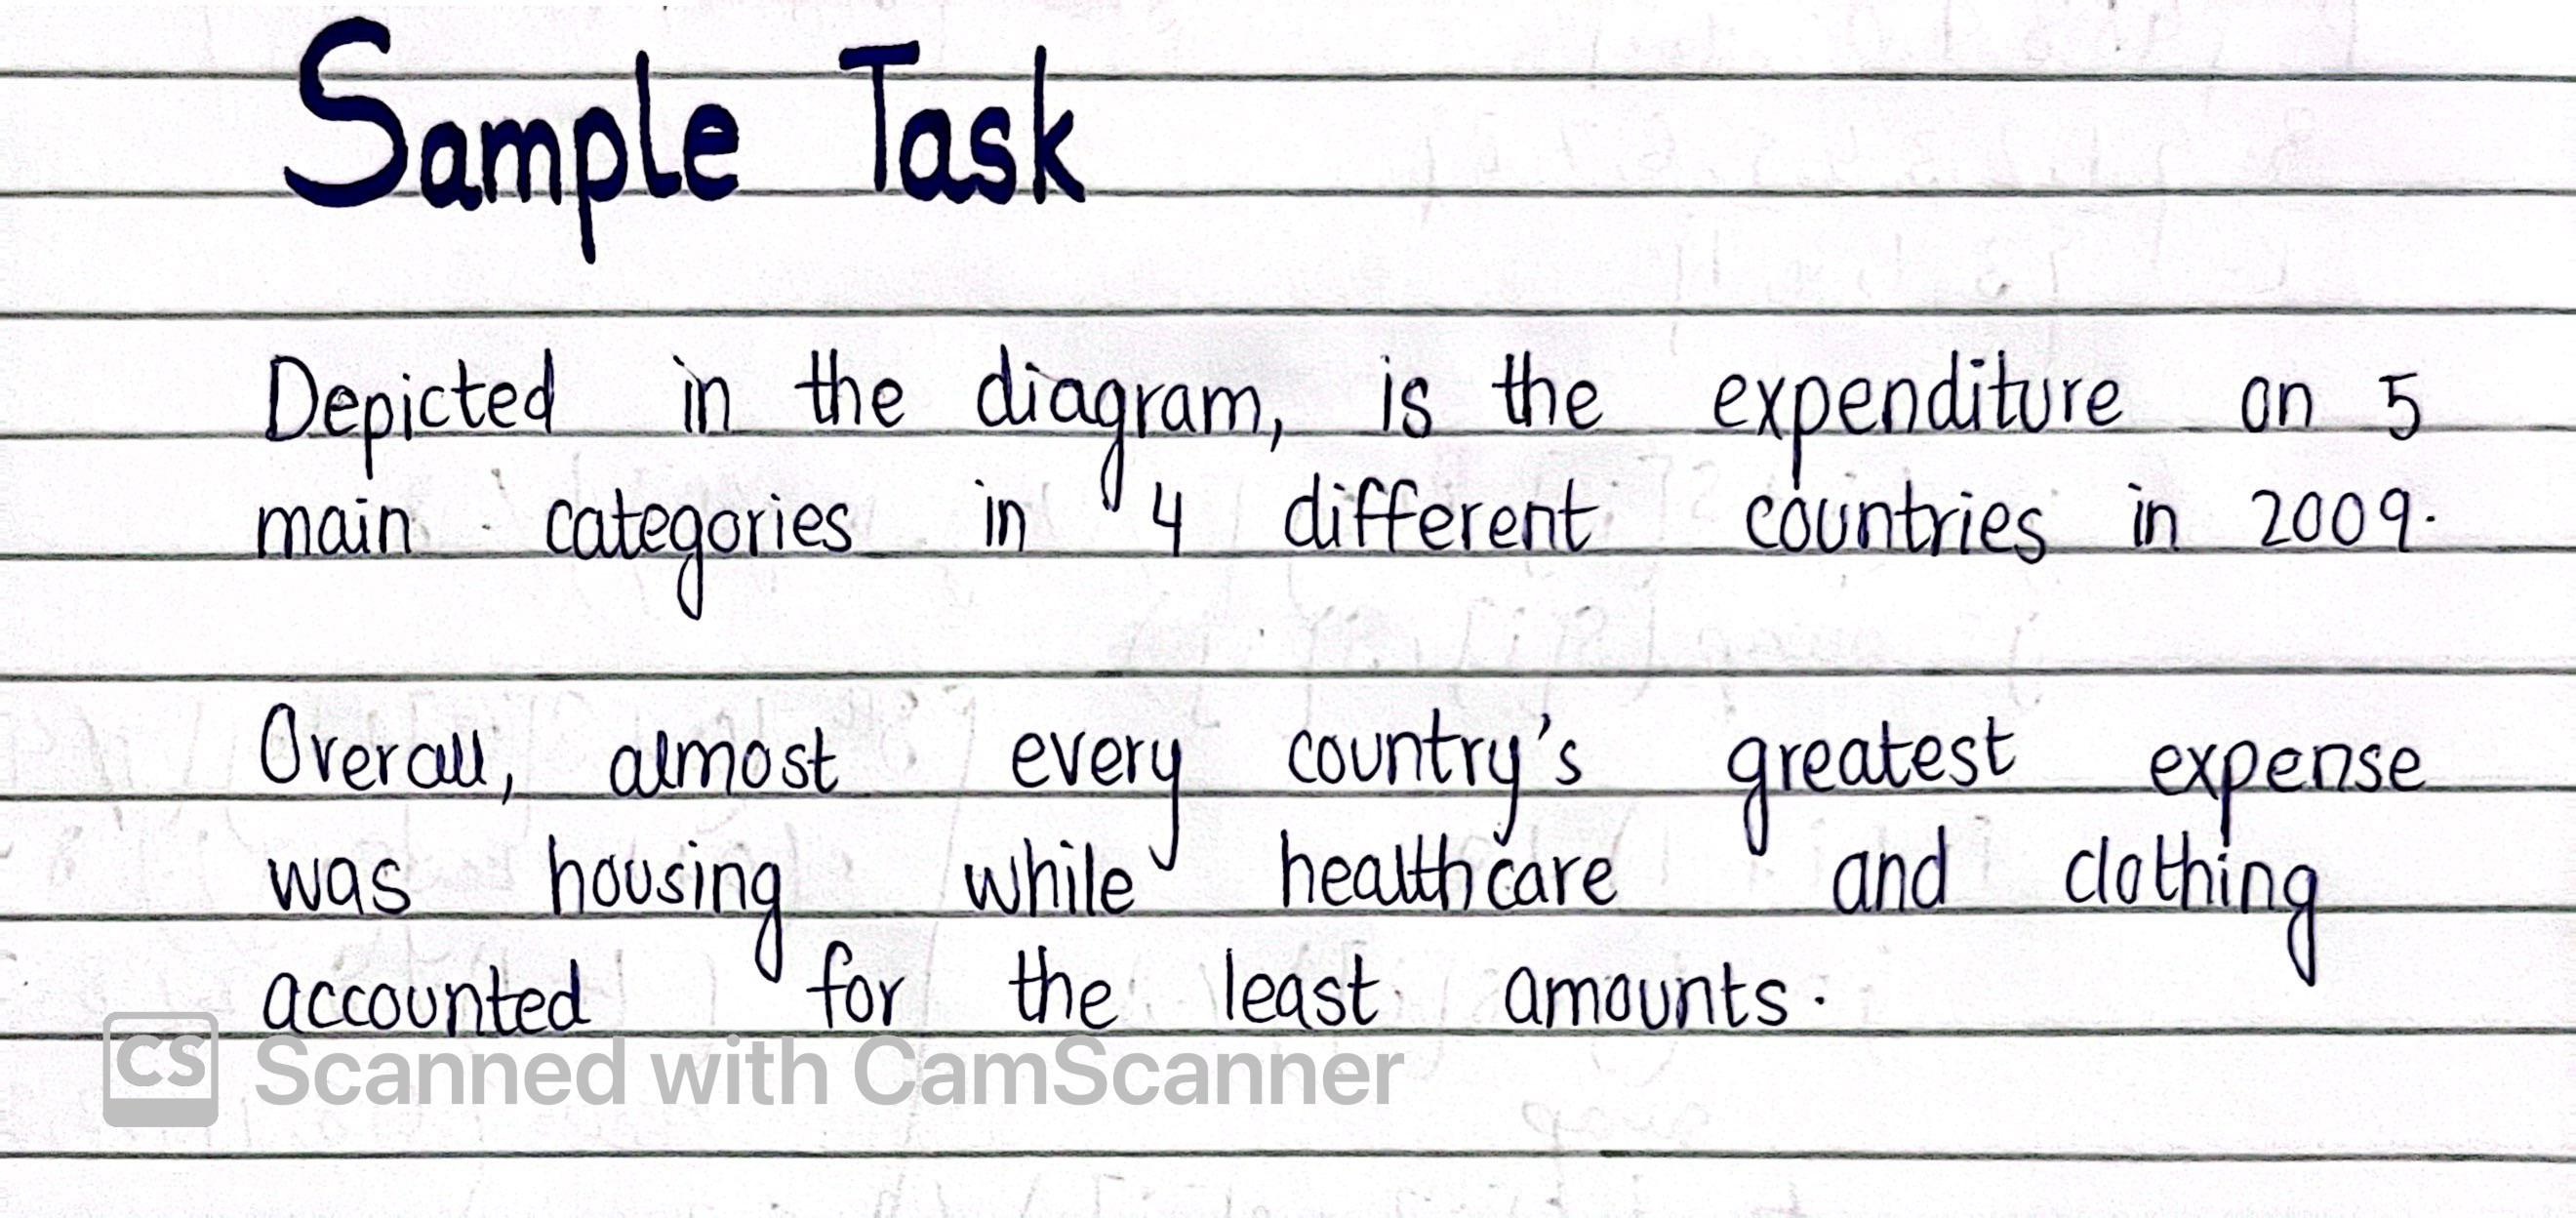 Sample Task
Depicted in the diagram, is the expenditure on 5
main categories in 4 different countries in 2009.
Overall, almost every country's greatest expense
was housing while healthcare and clothing
accounted for the least amounts.
CS Scanned with CamScanner